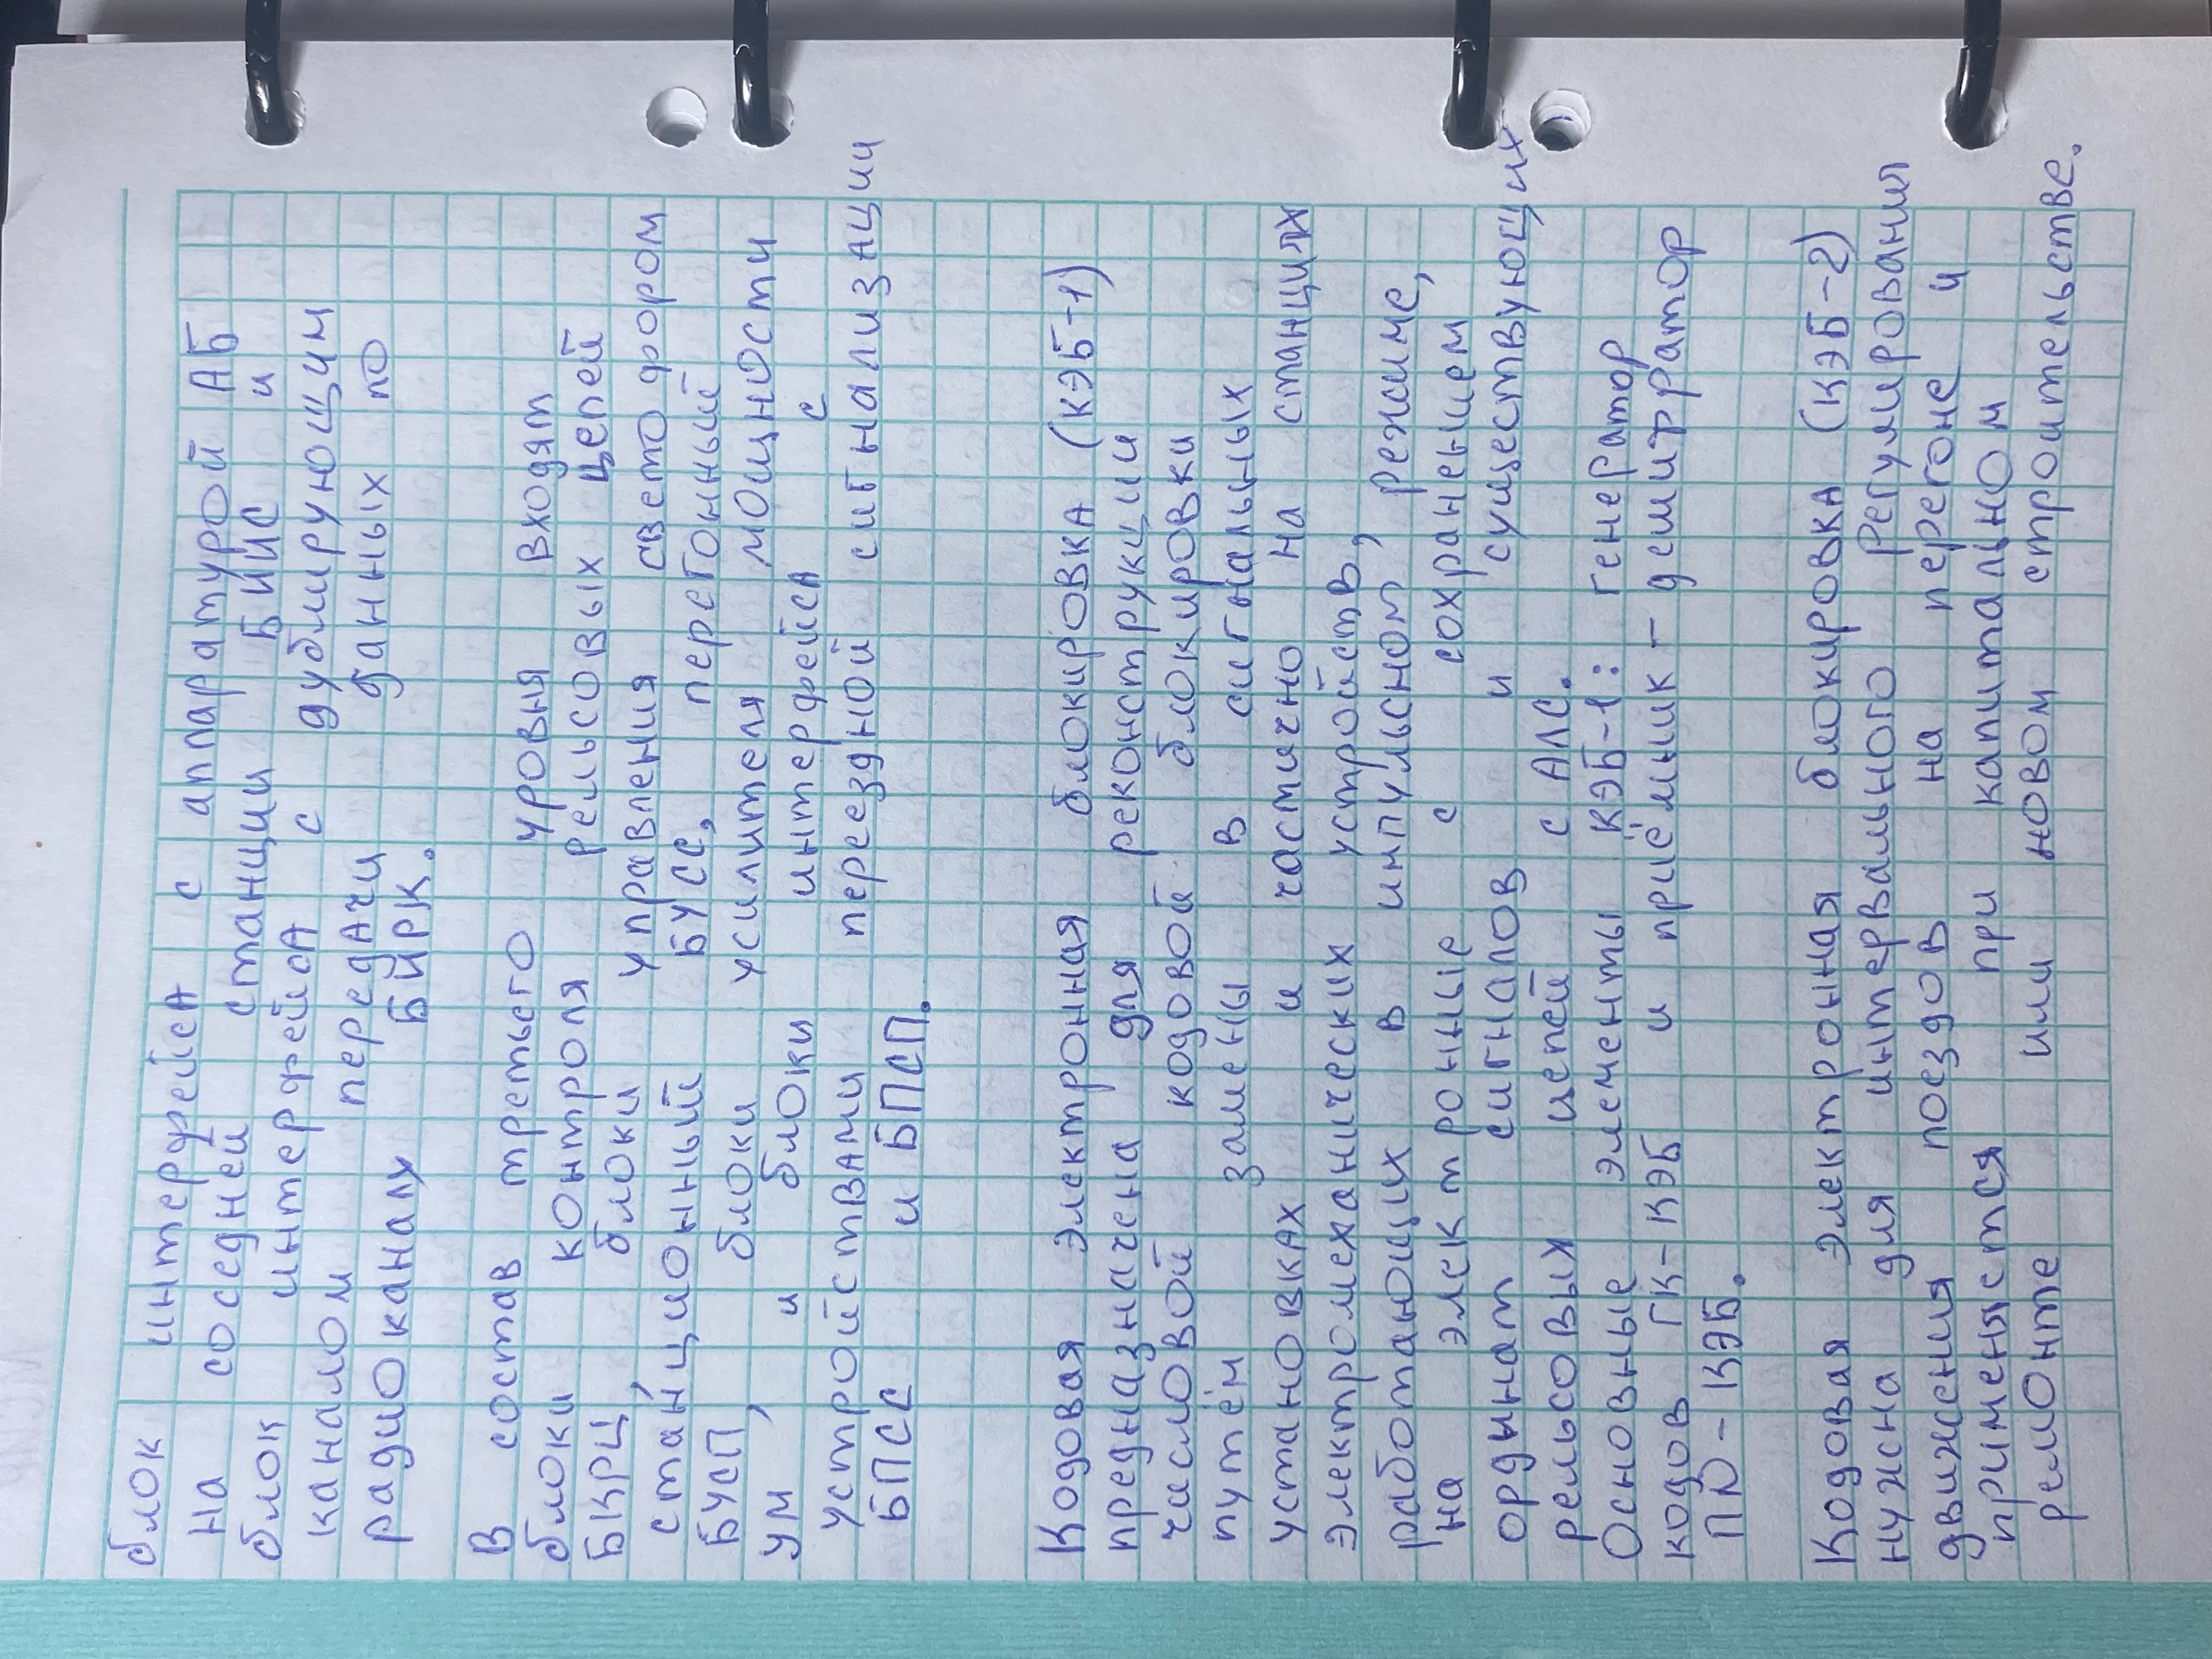 блок интерфейса с аппаратурой АБ
на соседней станции БИИС и
блок интерфейса с дублирующим
каналом передачи данных по
радиоканалу БИРК.
В состав третьего уровня входят
блоки контроля рельсовых цепей
БКРЦ, блоки управления светофором
станционный БУСС, перегонный
БУСП, блоки усилителя мощности
УМ и блоки интерфейса с
устройствами переездной сигнализации
БПСС и БПСП.
Кодовая электронная блокировка (КЭБ-1)
предназначена для реконструкции
числовой кодовой блокировки
путём замены в сигнальных
установках и частично на станциях
электромеханических устройств,
работающих в импульсном режиме,
на электронные с сохранением
ординат сигналов и существующих
рельсовых цепей с АЛС.
Основные элементы КЭБ-1: генератор
кодов ГК-КЭБ и приёмник - дешифратор
ПД-КЭБ.
Кодовая электронная блокировка (КЭБ-2)
нужна для интервального регулирования
движения поездов на перегоне и
применяется при капитальном
ремонте или новом строительстве.